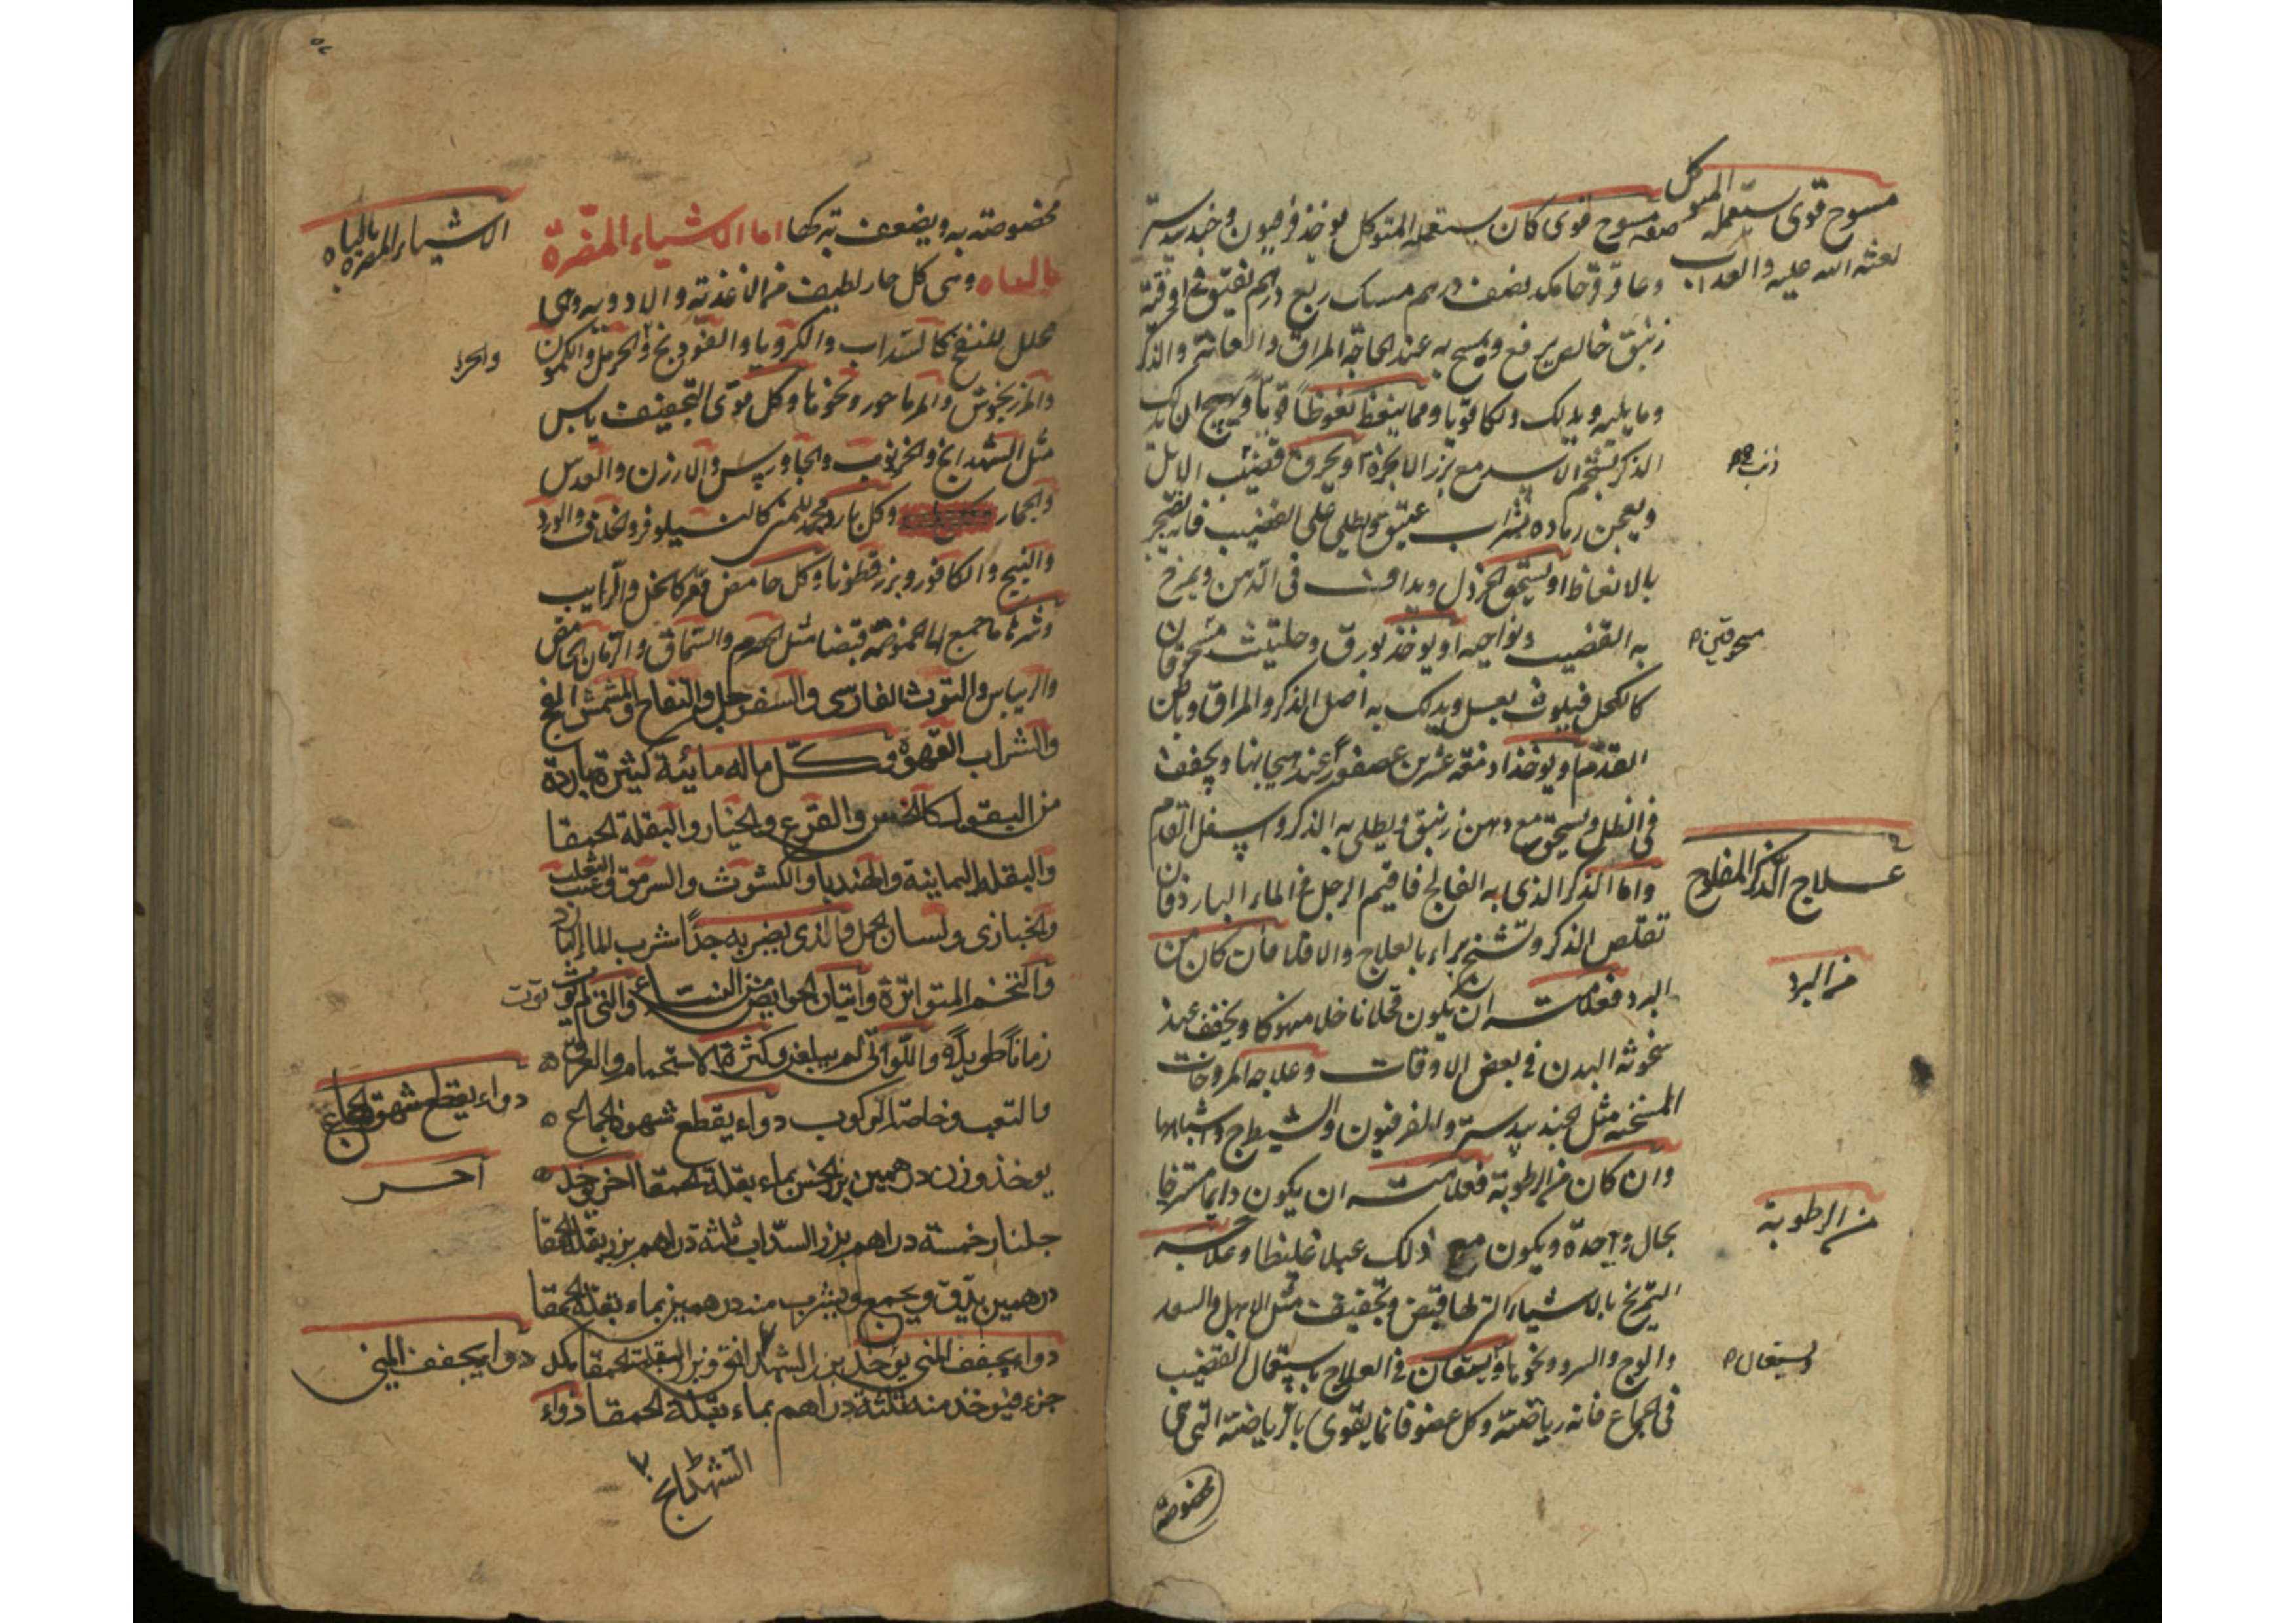 مسوح قوى يستعمله المتوكل
لعنة الله عليه والعذاب
صفة مسوح قوى كان يستعمله المتوكل يوخذ فربيون وجندبيدستر
وعاقرقرحا مكد نصف درهم مسك ربع درهم يفتق فى اوقية
زنبق خالص يرفع ويمسح به عند الحاجة المراق والعانة والذكر
وما يليه ويدلك دلكا قويا ومما ينعظ نعوظا قويا ويهيج ان يدلك
الذكر بشحم الاسد مع بزر الانجرة او يحرق قضيب الايل
ذنب
ويعجن رماده بشراب عتيق ويطلى على القضيب فانه يضجر
بالانعاظ او يسحق الخردل ويداف فى الدهن ويمرخ
به القضيب ونواحيه او يوخذ بورق وحلتيت مسحوقان
مسحوقين
كالكحل فيلوث بعسل ويدلك به اصل الذكر والمراق وباطن
القدم او يوخذ ادمغة عشرين عصفورا عند هيجانها ويجفف
فى الظل ويسحق مع دهن زنبق ويطلى به الذكر واسفل القدم
علاج الذكر المفلوج
واما الذكر الذى به الفالج فاقيم الرجل فى الماء البارد فان
تقلص الذكر وتشنج براء بالعلاج والا فلا فان كان من
من البرد
البرد فعلامته ان يكون قحلا ناحلا منهوكا ويخف عند
سخونة البدن فى بعض الاوقات وعلاجه المروخات
المسخنة مثل الجندبيدستر والفرفيون والشيطرج واشباهها
وان كان من الرطوبة فعلامته ان يكون دايما مسترخيا
من الرطوبة
بحال واحدة ويكون مع ذلك عبلا غليظا وعلاجه
التمريخ بالاشياء التى لها قبض وتجفيف مثل الابهل والسعد
والوج والسرو ونحوها ويستعان فى العلاج باستعمال القضيب
ويستعان
فى الجماع فانه رياضته وكل عضو فانما يقوى بالرياضة التى هى
مخصوصة
مخصوصة به ويضعف بتركها اما الاشياء المضرة
الاشياء المضرة بالباه
بالباه وهى كل حار لطيف من الاغذية والادوية وهى
محلل للنفخ كالسداب والكرويا والفودنج والحرمل والكمون
والمرزنجوش والمرماحور ونحوها وكل قوى التجفيف يابس
مثل الشهدانج والخرنوب والجاورس والارزن والعدس
والجمار وكل بارد مجمد للمنى كالنيلوفر والخلاف والورد
والبنج والكافور وبزر قطونا وكل حامض قعر كالخل والرايب
وشرها ما جمع الى الحموضة قبضا مثل الحصرم والسماق والرمان الحامض
والريباس والتوت الفارسى والسفرجل والتفاح والمشمش الفج
والشراب القهوة وكل ماله مائية كثيرة باردة
من البقول كالخس والقرع والخيار والبقلة الحمقا
والبقلة اليمانية والهنديا والكشوث والسرمق وعنب الثعلب
والخبازى ولسان الحمل والذى يضر به جدا شرب الماء البارد
والتخم المتواترة واتيان الحوايض من النساء والتى لم توت
توت
زمانا طويلا واللواتى لم يبلغن وكثرة الاستحمام والعرق
والتعب وخاصة الركوب دواء يقطع شهوة الجماع
دواء يقطع شهوة الجماع
يوخذ وزن درهمين بزر الخس بماء بقلة الحمقا اخر يوخذ
آخر
جلنار خمسة دراهم بزر السداب ثلثة دراهم بزر بقلة الحمقا
درهمين يدق ويجمع ويشرب منه درهمين بماء بقلة الحمقا
دواء يجفف المنى يوخذ بزر الشهدانق وبزر البقلة الحمقا مكد
دواء يجفف المنى
جزء فيوخذ منه ثلثة دراهم بماء بقلة الحمقا دواء
الشهدانج